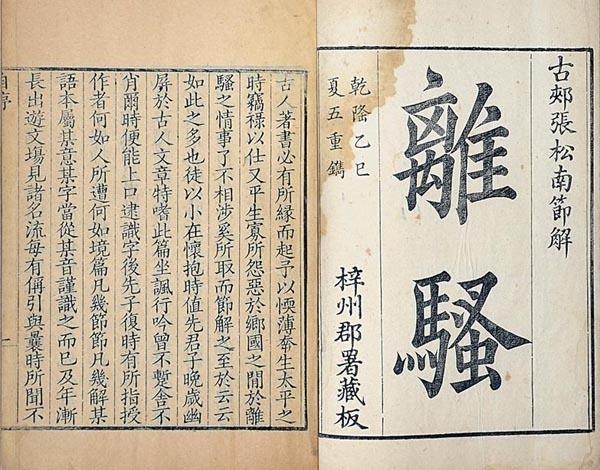 古郟張松南節解
離騷
乾隆乙巳
夏五重鐫
梓州郡署藏板
古人著書必有所緣而起予以愞薄奉生太平之
時竊祿以仕又平生寡所怨惡於鄉國之閒於離
騷之情事了不相涉奚所取而節解之至於云云
如此之多也徒以小在懷抱時值先君子晚歲幽
屏於古人文章特嗜此篇坐諷行吟曾不蹔舍不
肖爾時便能上口逮識字後先子復時有所指授
作者何如人所遭何如境篇凡幾節節凡幾解某
語本屬某意某字當從某音謹識之而已及年漸
長出遊文塲見諸名流每有稱引與曩時所聞不
一